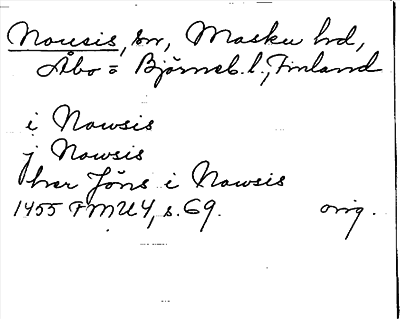 Nousis, sn, Masku hd,
Åbo = Björneb. l., Finland
i Nowsis
j Nowsis
her Jöns i Nowsis
1455 FMU 4, s. 69. orig.